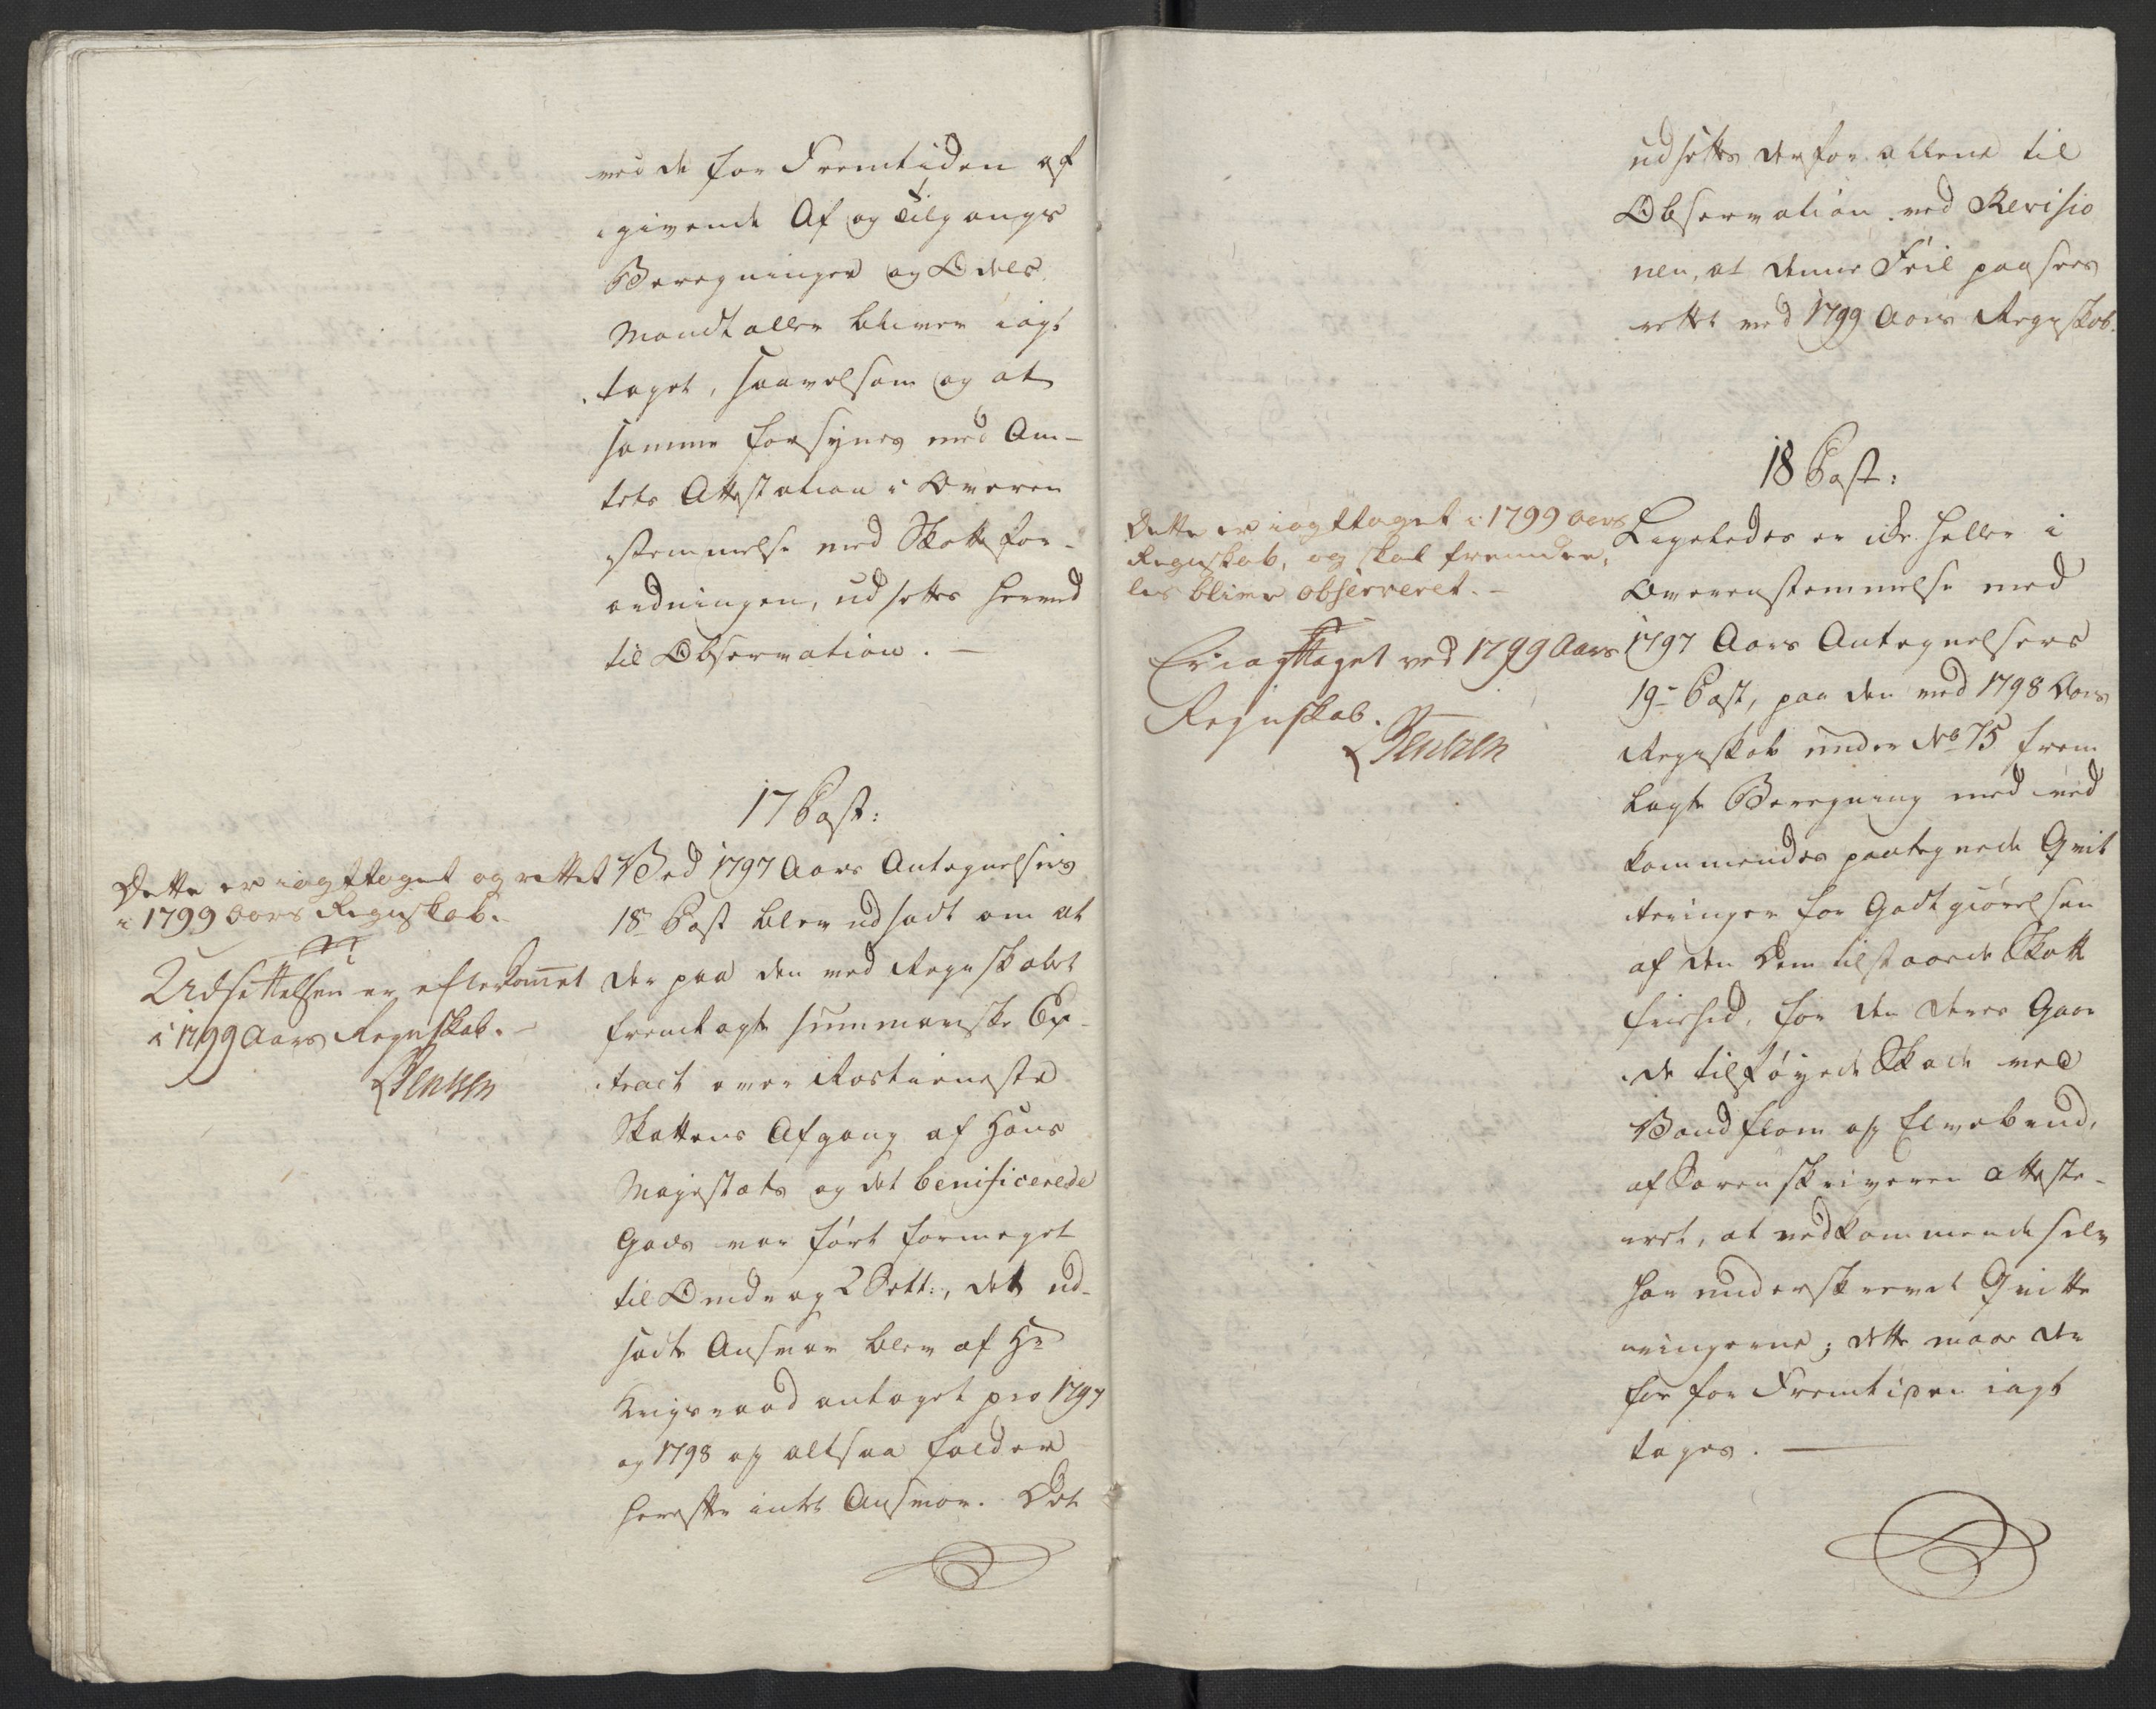 ved de for Fremtiden af
givende Af og Tilgangs
Beregninger og Odels
Mandtaller bliver iagt
taget, saavelsom og at
samme forsynes med Am-
tets Attestation i Overen
stemmelse med Skattefor-
ordningen, udsettes herved
til Observation. —
17 Post:
Dette er iagttaget og rettet
i 1799 Aars Regnskab.
Udsettelsen er efterkommet
i 1799 Aars Regnskab. —
Bentzen
Ved 1797 Aars Antegnelsers
18 Post blev udsadt om at
der paa den med Regnskabet
fremlagte summariske Ex-
tract over Rostieneste
Skattens Afgang af Hans
Majestæts og det benificerede
Gods var ført formeget
til Omdrag 2 Sett:, det ud-
sadte Ansvar blev af Hr
Krigsraad antaget pro 1797
og 1798 og altsaa falder
herefter intet Ansvar. Det
udsettes derfor allene til
Observation ved Revisio
nen, at denne Feil paasees
rettet med 1799 Aars Regnskab.
18 Post:
Dette er iagttaget i 1799 Aars
Regnskab, og skal fremdee-
les blive observeret. —
Er iagttaget ved 1799 Aars
Regnskab.
Bentzen
Ligeledes er ikke heller i
Overenstemmelse med
1797 Aars Antegnelsers
19 Post, paa den med 1798 Aars
Regnskab under No 75 frem
lagte Beregning med ved
kommendes paategnede Qvit
teringer for Godtgiørelsen
af den dem tilstaaede Skatte
friehed, for den deres Gaar
de tilføyede Skade ved
Vandflom og Elvebrud,
af Sorenskriveren atteste-
ret, at vedkommende selv
har underskrevet Qvitte
ringerne; dette maae der
for for Fremtiden iagt
tages. —